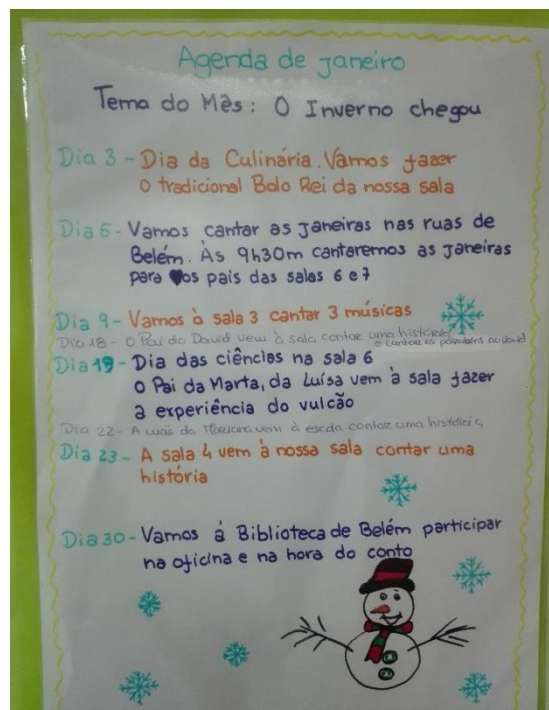 Agenda de Janeiro
Tema do Mês: O Inverno chegou
Dia 3 - Dia da Culinária. Vamos fazer
o tradicional Bolo Rei da nossa sala
Dia 5 - Vamos cantar as Janeiras nas ruas de
Belém. Às 9h30m cantaremos as Janeiras
para os pais das salas 6 e 7
Dia 9 - Vamos à sala 3 cantar 3 músicas
Dia 18 - O Pai do David vem à sala contar uma história
e cantar os parabéns ao David
Dia 19 - Dia das ciências na sala 6
O Pai da Marta, da Luísa vem à sala fazer
a experiência do vulcão
Dia 22 - A mais da Mariana vem à escola contar uma história
Dia 23 - A sala 4 vem à nossa sala contar uma
história
Dia 30 - Vamos á Biblioteca de Belém participar
na oficina e na hora do conto